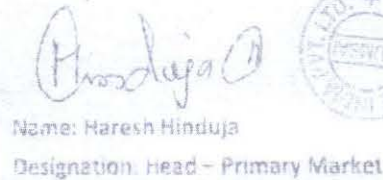 Hinduja
Name: Haresh Hinduja
Designation: Head – Primary Market